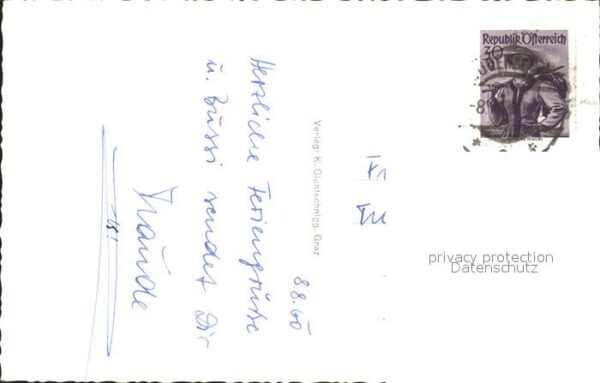 8.8.60
Herzliche Feriengrüße
u. Bussi sendet Dir
Traude
Verlag: K. Glantschnigg, Graz
Fr
Republik Österreich
30
privacy protection
Datenschutz